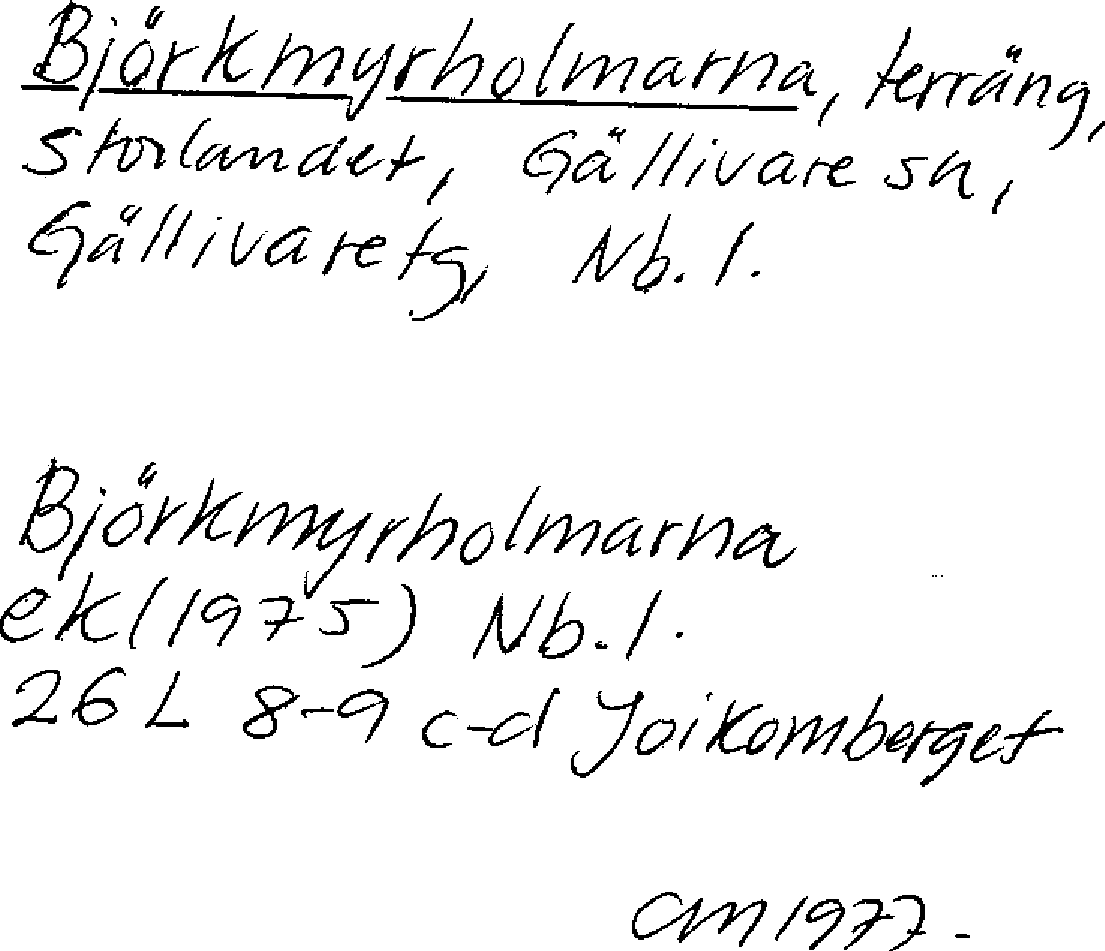 Björkmyrholmarna, terräng,
Storlandet, Gällivare sn,
Gällivare tg, Nb. l.
Björkmyrholmarna
ek (1975) Nb. l.
26 L 8-9 c-d Joikomberget
CM 1977.